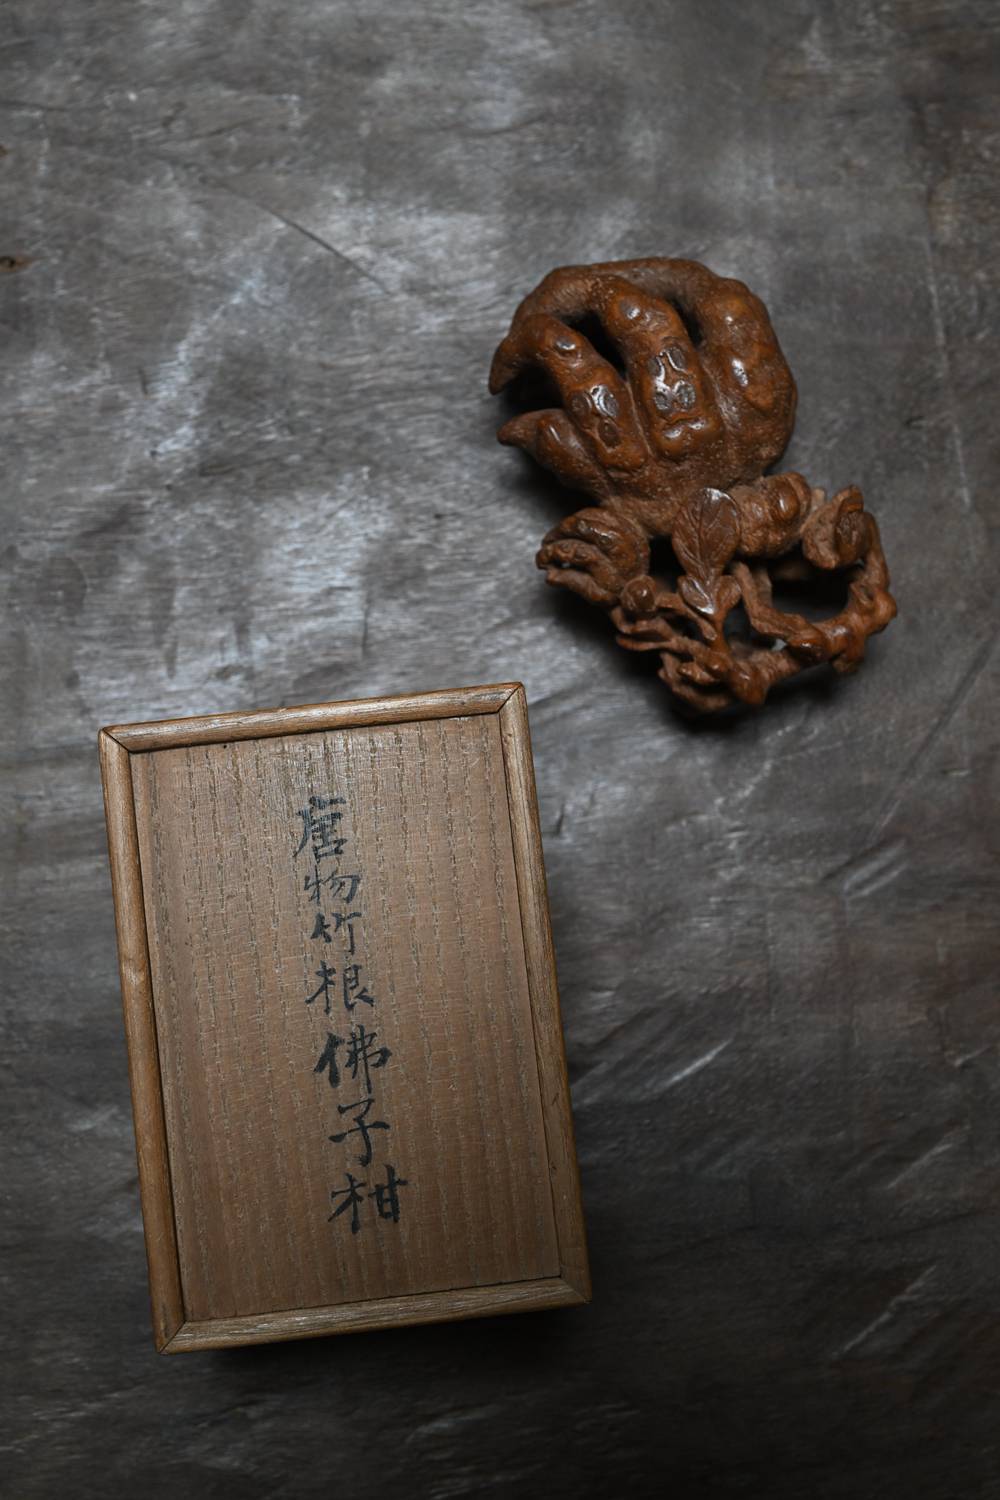 唐物竹根佛子柑